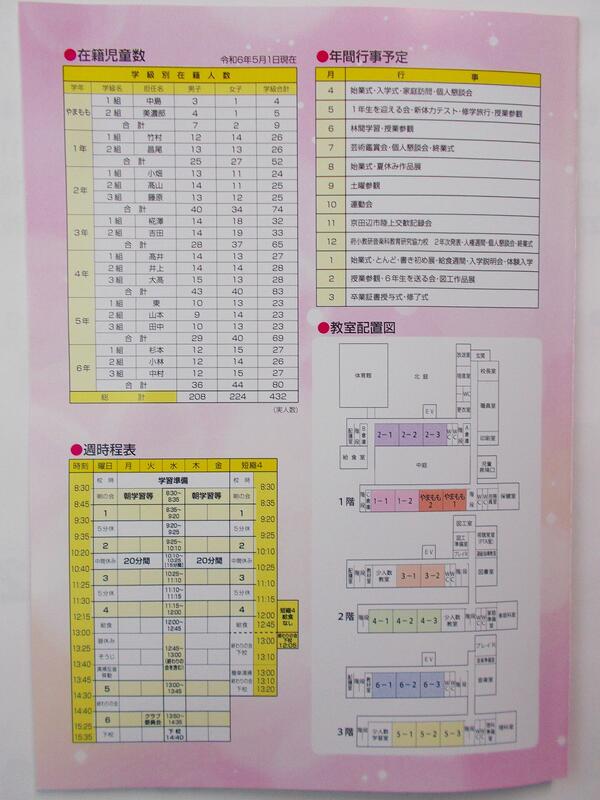 ●在籍児童数
令和6年5月1日現在
学級別在籍人数
学年 学級名 担任名 男子 女子 学級合計
やまもも 1組 中島 3 1 4
2組 美濃部 4 1 5
合計 7 2 9
1年 1組 竹村 12 14 26
2組 昌尾 13 13 26
合計 25 27 52
2年 1組 小畑 13 11 24
2組 髙山 14 11 25
3組 藤原 13 12 25
合計 40 34 74
3年 1組 椛澤 14 18 32
2組 吉田 14 19 33
合計 28 37 65
4年 1組 髙井 14 13 27
2組 井上 14 14 28
3組 大髙 15 13 28
合計 43 40 83
5年 1組 東 10 13 23
2組 山本 9 14 23
3組 田中 10 13 23
合計 29 40 69
6年 1組 杉本 12 15 27
2組 小林 12 14 26
3組 中村 12 15 27
合計 36 44 80
総計 208 224 432
(実人数)
●週時程表
時刻 曜日 月 火 水 木 金 短縮4
校時 学習準備
8:30 朝の会 朝学習等 8:30~8:35 朝学習等 8:30
8:45 1 8:35~9:20 8:45
9:30 5分休 9:20~9:25 9:30
9:35 2 9:25~10:10 9:35
10:20 中間休み 20分間 10:10~10:25 (15分間) 20分間 10:20
10:40 3 10:25~11:10 10:40
11:25 5分休 11:10~11:15 11:25
11:30 4 11:15~12:00 11:30
12:15 給食 12:00~12:45 給食 12:00
13:00 昼休み 12:45
そうじ 12:45~13:00 (終わりの会を含む) 終わりの会 下校 13:00
13:10
5 13:00~13:45 13:00
14:40 終わりの会 終わりの会 13:10
14:50 6 クラブ 委員会 13:50~14:35 下校 13:20
15:35 下校 下校 14:40
短縮4 給食なし
終わりの会 下校 12:05
●年間行事予定
月 行事
4 始業式・入学式・家庭訪問・個人懇談会
5 1年生を迎える会・新体力テスト・修学旅行・授業参観
6 林間学習・授業参観
7 芸術鑑賞会・個人懇談会・終業式
8 始業式・夏休み作品展
9 土曜参観
10 運動会
11 京田辺市陸上交歓記録会
12 府小教研音楽科教育研究協力校 2年次発表・人権週間・個人懇談会・終業式
1 始業式・とんど・書き初め展・給食週間・入学説明会・体験入学
2 授業参観・6年生を送る会・図工作品展
3 卒業証書授与式・修了式
●教室配置図
体育館 北庭 放送室 玄関
校長室
WC 職員室
EV 更衣室
配膳室 階段 B倉庫 2-1 2-2 2-3 WC WC 階段 A倉庫 印刷室
給食室 中庭 児童昇降口
1階 階段 C倉庫 1-1 1-2 やまもも2 やまもも1 WC WC 階段 保健室
図工室
図工準備室
EV プレイR
配膳室 階段 教材室 少人数教室 3-1 3-2 WC WC 階段 図書室
2階 階段 4-1 4-2 4-3 少人数教室 WC WC 階段 家庭科準備室 家庭科室
プレイR
音楽準備室
EV 音楽室
配膳室 階段 教材室 6-1 6-2 6-3 WC WC 階段
3階 階段 少人数学習室 5-1 5-2 5-3 WC WC 階段 理科準備室 理科室